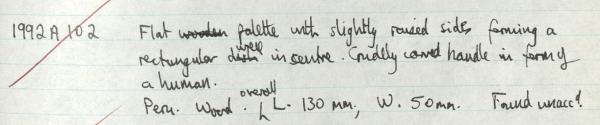 1992 A 102 Flat wooden palette with slightly raised sides forming a
rectangular dish well in centre. Crudely carved handle in form of
a human.
Peru. Wood. overall L. 130 mm, W. 50 mm. Found unaccd.